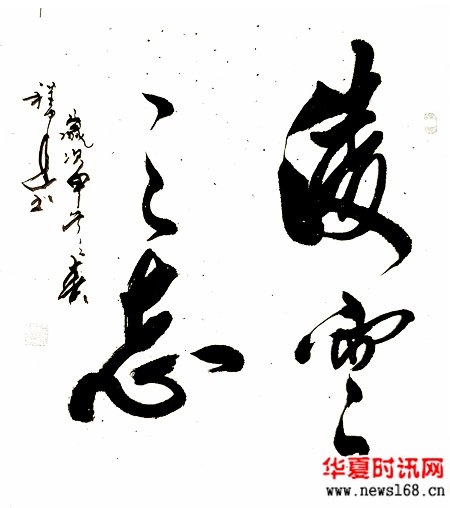 凌雲
之志
歲次甲午之春
书
华夏时讯网
www.news168.cn